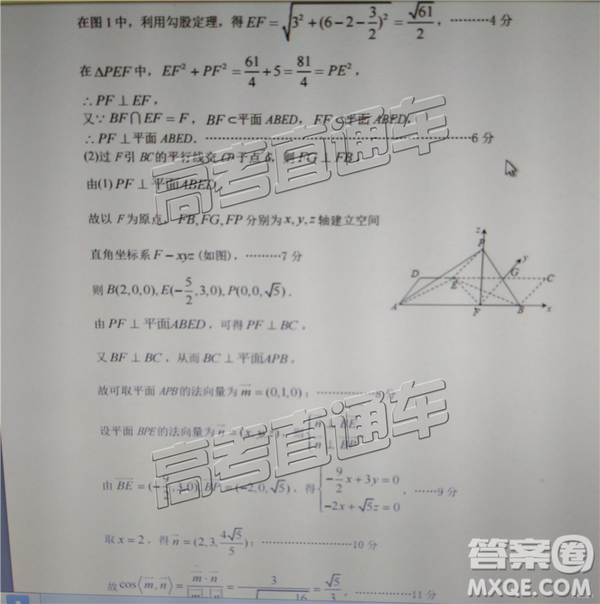 在图1中，利用勾股定理，得 EF = √(3² + (6−2−3/2)²) = √61/2，………4 分
在 ΔPEF 中，EF² + PF² = 61/4 + 5 = 81/4 = PE²，
∴ PF ⊥ EF，
又∵ BF∩EF = F，BF⊂平面 ABED，EF⊂平面 ABED，
∴ PF ⊥ 平面 ABED. ………6 分
(2)过 F 引 BC 的平行线交 CD 于点 G，则 FG ⊥ FB，
由(1) PF ⊥ 平面 ABED
故以 F 为原点，FB, FG, FP 分别为 x, y, z 轴建立空间
直角坐标系 F−xyz (如图)，………7 分
则 B(2,0,0), E(−5/2,3,0), P(0,0,√5).
由 PF ⊥ 平面ABED，可得 PF ⊥ BC，
又 BF ⊥ BC，从而 BC ⊥ 平面APB.
故可取平面 APB的法向量为 m = (0,1,0)；………8分
设平面 BPE的法向量为 n = (x, y, z)，则 { n ⊥ BE, n ⊥ BP
由 BE = (−9/2,3,0), BP = (−2,0,√5)，得 { −9/2 x + 3y = 0, −2x + √5z = 0 ，……9 分
取 x = 2，得 n = (2,3,4√5/5)；………10 分
故 cos⟨m, n⟩ = m·n = 3 = √5/3，………11 分
z
P
y
D
E
G
C
A
F
B
x
高考直通车
高考直通车
高考直通车
答案圈
MXQE.COM